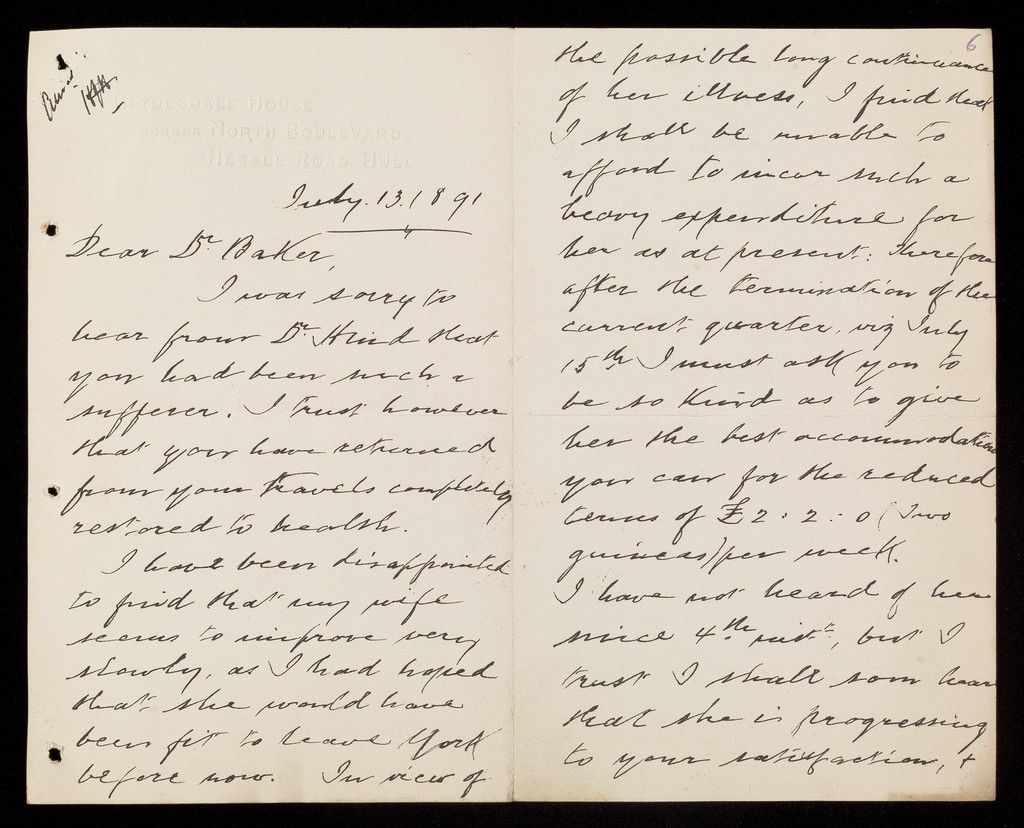 Clydesdale House
Corner North Boulevard,
Hessle Road Hull
July. 13. 1891
Dear Dr. Baker,
I was sorry to
hear from Dr. Hind that
you had been such a
sufferer. I trust however
that you have returned
from your travels completely
restored to health.
I have been disappointed
to find that my wife
seems to improve very
slowly, as I had hoped
that she would have
been fit to leave York
before now. In view of
6
the possible long continuance
of her illness, I find that
I shall be unable to
afford to incur such a
heavy expenditure for
her as at present: therefore
after the termination of the
current quarter, viz July
15th I must ask you to
be so kind as to give
her the best accommodation
you can for the reduced
terms of £2:2:0 (Two
guineas) per week.
I have not heard of her
since 4th inst., but I
trust I shall soon hear
that she is progressing
to your satisfaction, +